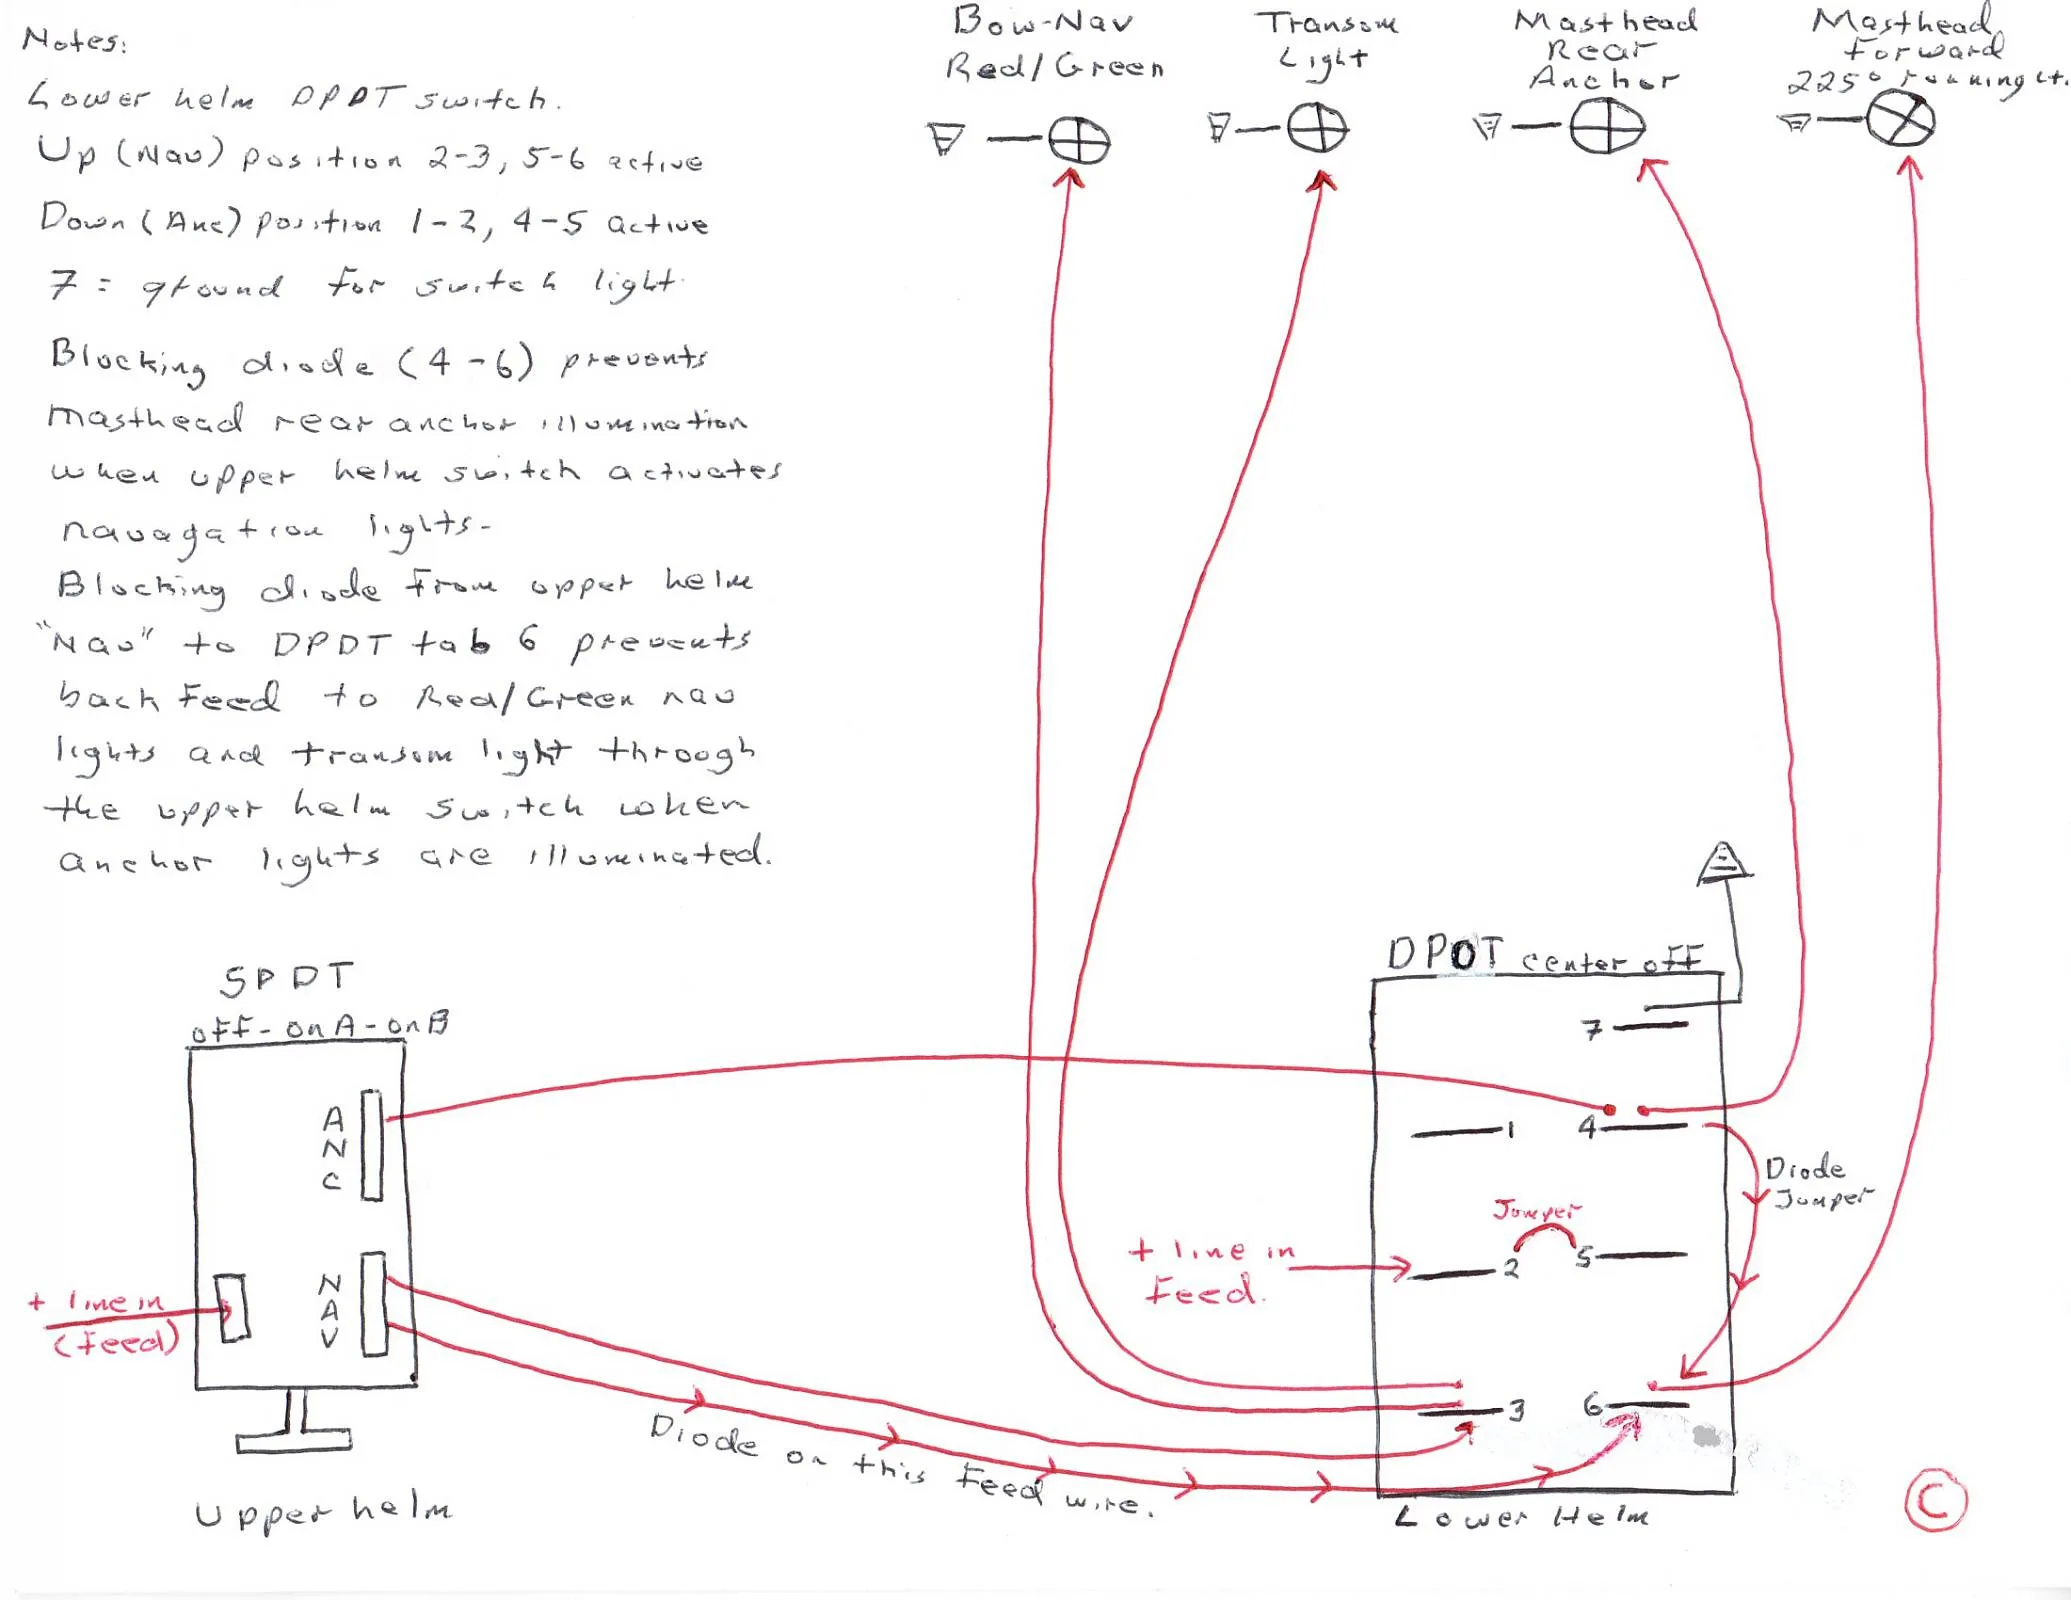 Notes:
Lower helm DPDT switch.
Up (Nav) position 2-3, 5-6 active
Down (Anc) position 1-2, 4-5 active
7 = ground for switch light.
Blocking diode (4-6) prevents
masthead rear anchor illumination
when upper helm switch activates
navagation lights-
Blocking diode from upper helm
"Nav" to DPDT tab 6 prevents
back feed to Red/Green nav
lights and transom light through
the upper helm switch when
anchor lights are illuminated.
Bow-Nav
Red/Green
Transom
Light
Masthead
Rear
Anchor
Masthead
Forward
225° running Lt.
SPDT
off-onA-onB
ANC
NAV
+ line in
(feed)
Upper helm
Diode on this feed wire.
DPDT center off
7
1
4
Diode
Jumper
Jumper
+ line in
Feed.
2
5
3
6
Lower Helm
C